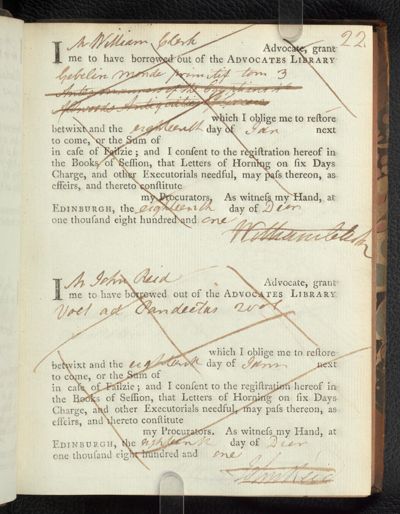 22
I Mr William Clerk Advocate, grant
me to have borrowed out of the ADVOCATES LIBRARY
Gebelin monde primitif tom 3
which I oblige me to reſtore
betwixt and the eighteenth day of Jan next
to come, or the Sum of
in caſe of Failzie; and I conſent to the regiſtration hereof in
the Books of Seſſion, that Letters of Horning on ſix Days
Charge, and other Executorials needful, may paſs thereon, as
effeirs, and thereto conſtitute
my Procurators. As witneſs my Hand, at
EDINBURGH, the eighteenth day of Decr
one thouſand eight hundred and one
William Clerk
I Mr John Reid Advocate, grant
me to have borrowed out of the ADVOCATES LIBRARY
Voet ad Pandectas 2 vols
which I oblige me to reſtore
betwixt and the eighteenth day of Jany next
to come, or the Sum of
in caſe of Failzie; and I conſent to the regiſtration hereof in
the Books of Seſſion, that Letters of Horning on ſix Days
Charge, and other Executorials needful, may paſs thereon, as
effeirs, and thereto conſtitute
my Procurators. As witneſs my Hand, at
EDINBURGH, the eighteenth day of Decr
one thouſand eight hundred and one
John Reid